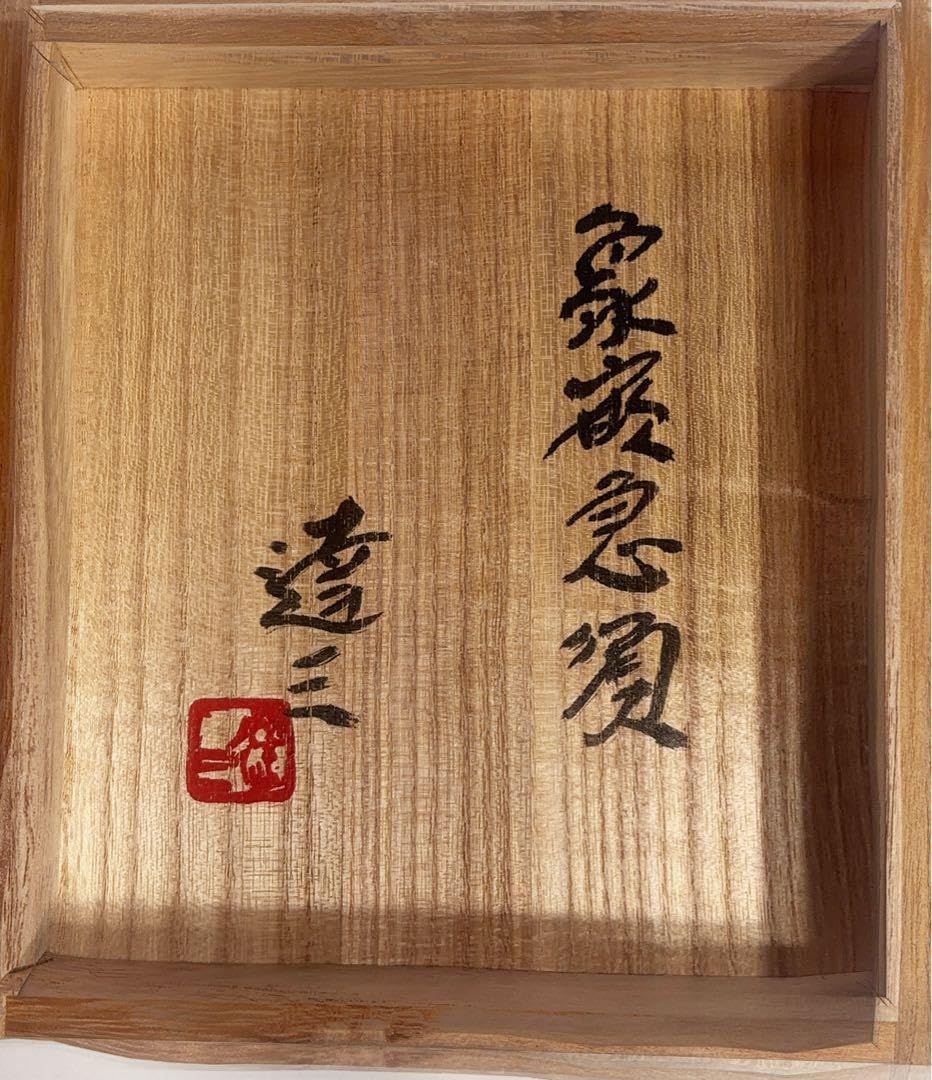 象嵌急須
達三